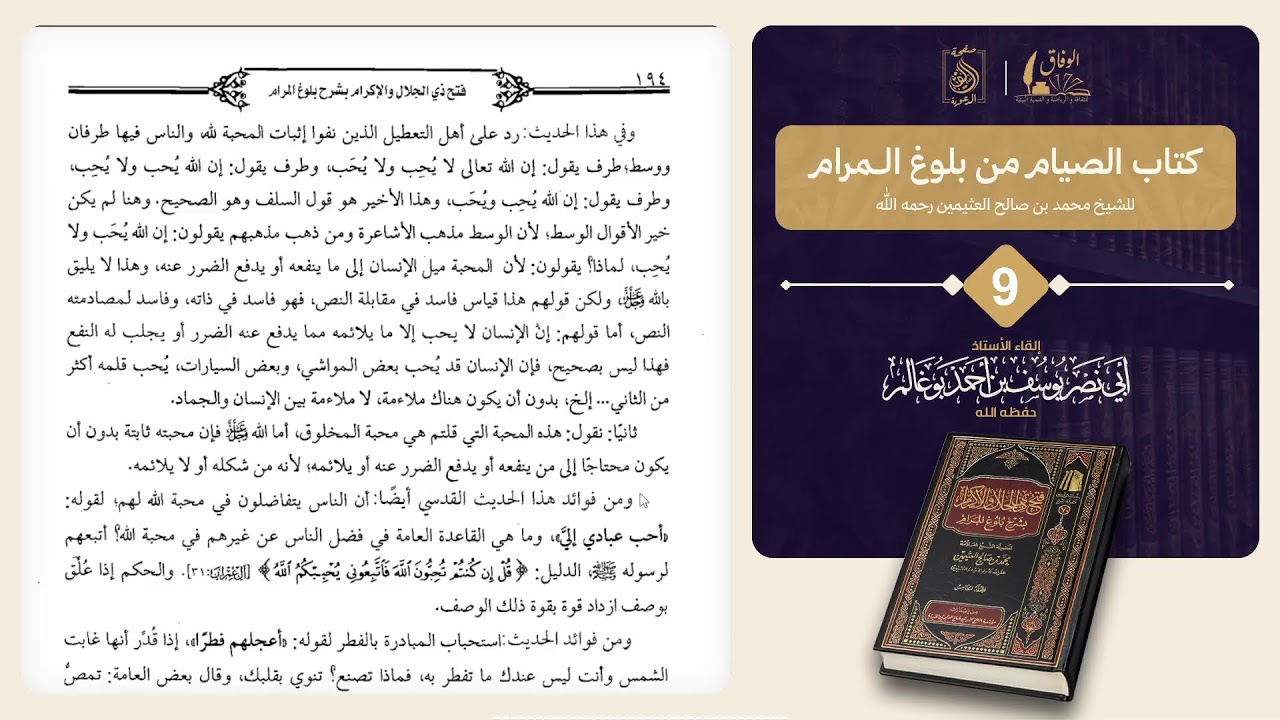 ١٩٤
فتح ذي الجلال والإكرام بشرح بلوغ المرام
وفي هذا الحديث: رد على أهل التعطيل الذين نفوا إثبات المحبة لله، والناس فيها طرفان
ووسط؛ طرف يقول: إن الله تعالى لا يُحِب ولا يُحَب، وطرف يقول: إن الله يُحب ولا يُحِب،
وطرف يقول: إن الله يُحِب ويُحَب، وهذا الأخير هو قول السلف وهو الصحيح. وهنا لم يكن
خير الأقوال الوسط؛ لأن الوسط مذهب الأشاعرة ومن ذهب مذهبهم يقولون: إن الله يُحَب ولا
يُحِب، لماذا؟ يقولون: لأن المحبة ميل الإنسان إلى ما ينفعه أو يدفع الضرر عنه، وهذا لا يليق
بالله ﷻ، ولكن قولهم هذا قياس فاسد في مقابلة النص، فهو فاسد في ذاته، وفاسد لمصادمته
النص، أما قولهم: إنَّ الإنسان لا يحب إلا ما يلائمه مما يدفع عنه الضرر أو يجلب له النفع
فهذا ليس بصحيح، فإن الإنسان قد يُحب بعض المواشي، وبعض السيارات، يُحب قلمه أكثر
من الثاني... إلخ، بدون أن يكون هناك ملاءمة، لا ملاءمة بين الإنسان والجماد.
ثانيًا: نقول: هذه المحبة التي قلتم هي محبة المخلوق، أما الله ﷻ فإن محبته ثابتة بدون أن
يكون محتاجًا إلى من ينفعه أو يدفع الضرر عنه أو يلائمه؛ لأنه من شكله أو لا يلائمه.
ومن فوائد هذا الحديث القدسي أيضًا: أن الناس يتفاضلون في محبة الله لهم؛ لقوله:
«أحب عبادي إليَّ»، وما هي القاعدة العامة في فضل الناس عن غيرهم في محبة الله؟ أتبعهم
لرسوله ﷺ، الدليل: ﴿قُلْ إِن كُنتُمْ تُحِبُّونَ ٱللَّهَ فَٱتَّبِعُونِي يُحْبِبْكُمُ ٱللَّهُ﴾ [آل عمران: ٣١]. والحكم إذا عُلِّق
بوصف ازداد قوة بقوة ذلك الوصف.
ومن فوائد الحديث: استحباب المبادرة بالفطر لقوله: «أعجلهم فطرًا»، إذا قُدِّر أنها غابت
الشمس وأنت ليس عندك ما تفطر به، فماذا تصنع؟ تنوي بقلبك، وقال بعض العامة: تمصُّ
صفحة
الدعوية
الوفاق
للثقافة و الرياضة و التنمية البيئية
كتاب الصيام من بلوغ المرام
للشيخ محمد بن صالح العثيمين رحمه الله
9
إلقاء الأستاذ
أبي نصر يوسف بن أحمد بوغالم
حفظه الله
فتح ذي الجلال والإكرام
بشرح بلوغ المرام